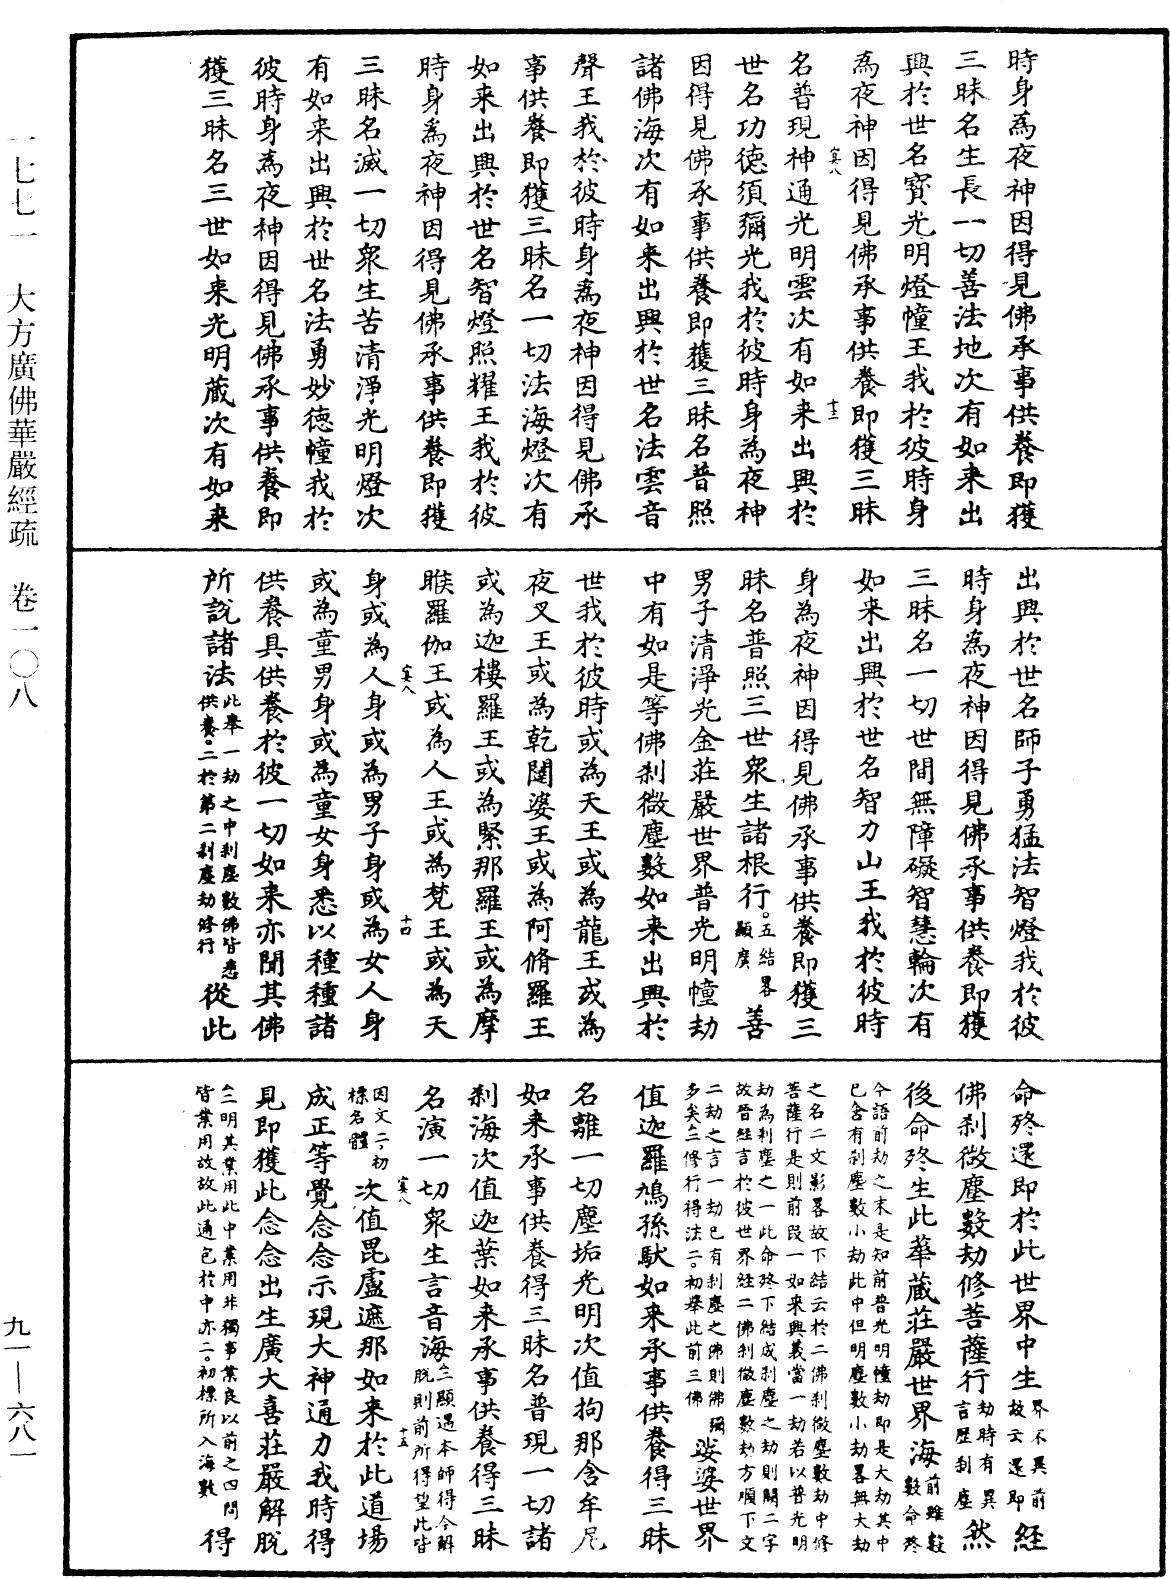 時身為夜神因得見佛承事供養即獲
三昧名生長一切善法地次有如来出
興於世名寶光明燈幢王我於彼時身
為夜神因得見佛承事供養即獲三昧
名普現神通光明雲次有如来出興於
世名功德須彌光我於彼時身為夜神
因得見佛承事供養即獲三昧名普照
諸佛海次有如来出興於世名法雲音
聲王我於彼時身為夜神因得見佛承
事供養即獲三昧名一切法海燈次有
如来出興於世名智燈照耀王我於彼
時身為夜神因得見佛承事供養即獲
三昧名滅一切衆生苦清淨光明燈次
有如来出興於世名法勇妙德幢我於
彼時身為夜神因得見佛承事供養即
獲三昧名三世如来光明藏次有如来
出興於世名師子勇猛法智燈我於彼
時身為夜神因得見佛承事供養即獲
三昧名一切世間無障礙智慧輪次有
如来出興於世名智力山王我於彼時
身為夜神因得見佛承事供養即獲三
昧名普照三世衆生諸根行。五結畧顯廣善
男子清淨光金莊嚴世界普光明幢劫
中有如是等佛剎微塵數如来出興於
世我於彼時或為天王或為龍王或為
夜叉王或為乾闥婆王或為阿脩羅王
或為迦樓羅王或為緊那羅王或為摩
睺羅伽王或為人王或為梵王或為天
身或為人身或為男子身或為女人身
或為童男身或為童女身悉以種種諸
供養具供養於彼一切如来亦聞其佛
所說諸法此舉一劫之中剎塵數佛皆悉供養。二於第二剎塵劫修行從此
命終還即於此世界中生界不異前故云還即經
佛剎微塵數劫修菩薩行劫時有異言歷剎塵然
後命終生此華藏莊嚴世界海前雖數數命終
今語前劫之末是知前普光明幢劫即是大劫其中
已含有剎塵數小劫此中但明塵數小劫畧無大劫
之名二文影畧故下結云於二佛剎微塵數劫中修
菩薩行是則前段一如来興義當一劫若以普光明
劫為剎塵之一此命終下結成剎塵之劫則闕二字
故晉經言於彼世界經二佛剎微塵數劫方順下文
二劫之言一劫已有剎塵之佛則佛彌
多矣△三修行得法二。初舉此前三佛娑婆世界
值迦羅鳩孫馱如来承事供養得三昧
名離一切塵垢光明次值拘那含牟尼
如来承事供養得三昧名普現一切諸
剎海次值迦葉如来承事供養得三昧
名演一切衆生言音海△三顯遇本師得今解脫則前所得望此皆
因文二。初標名體次值毘盧遮那如来於此道場
成正等覺念念示現大神通力我時得
見即獲此念念出生廣大喜莊嚴解脫
△三明其業用此中業用非獨事業良以前之四問
皆業用故故此通包於中亦二。初標所入海數得
寘八
十三
寘八
十四
寘八
十五
一七七一　大方廣佛華嚴經疏　卷一〇八
九一—六八一